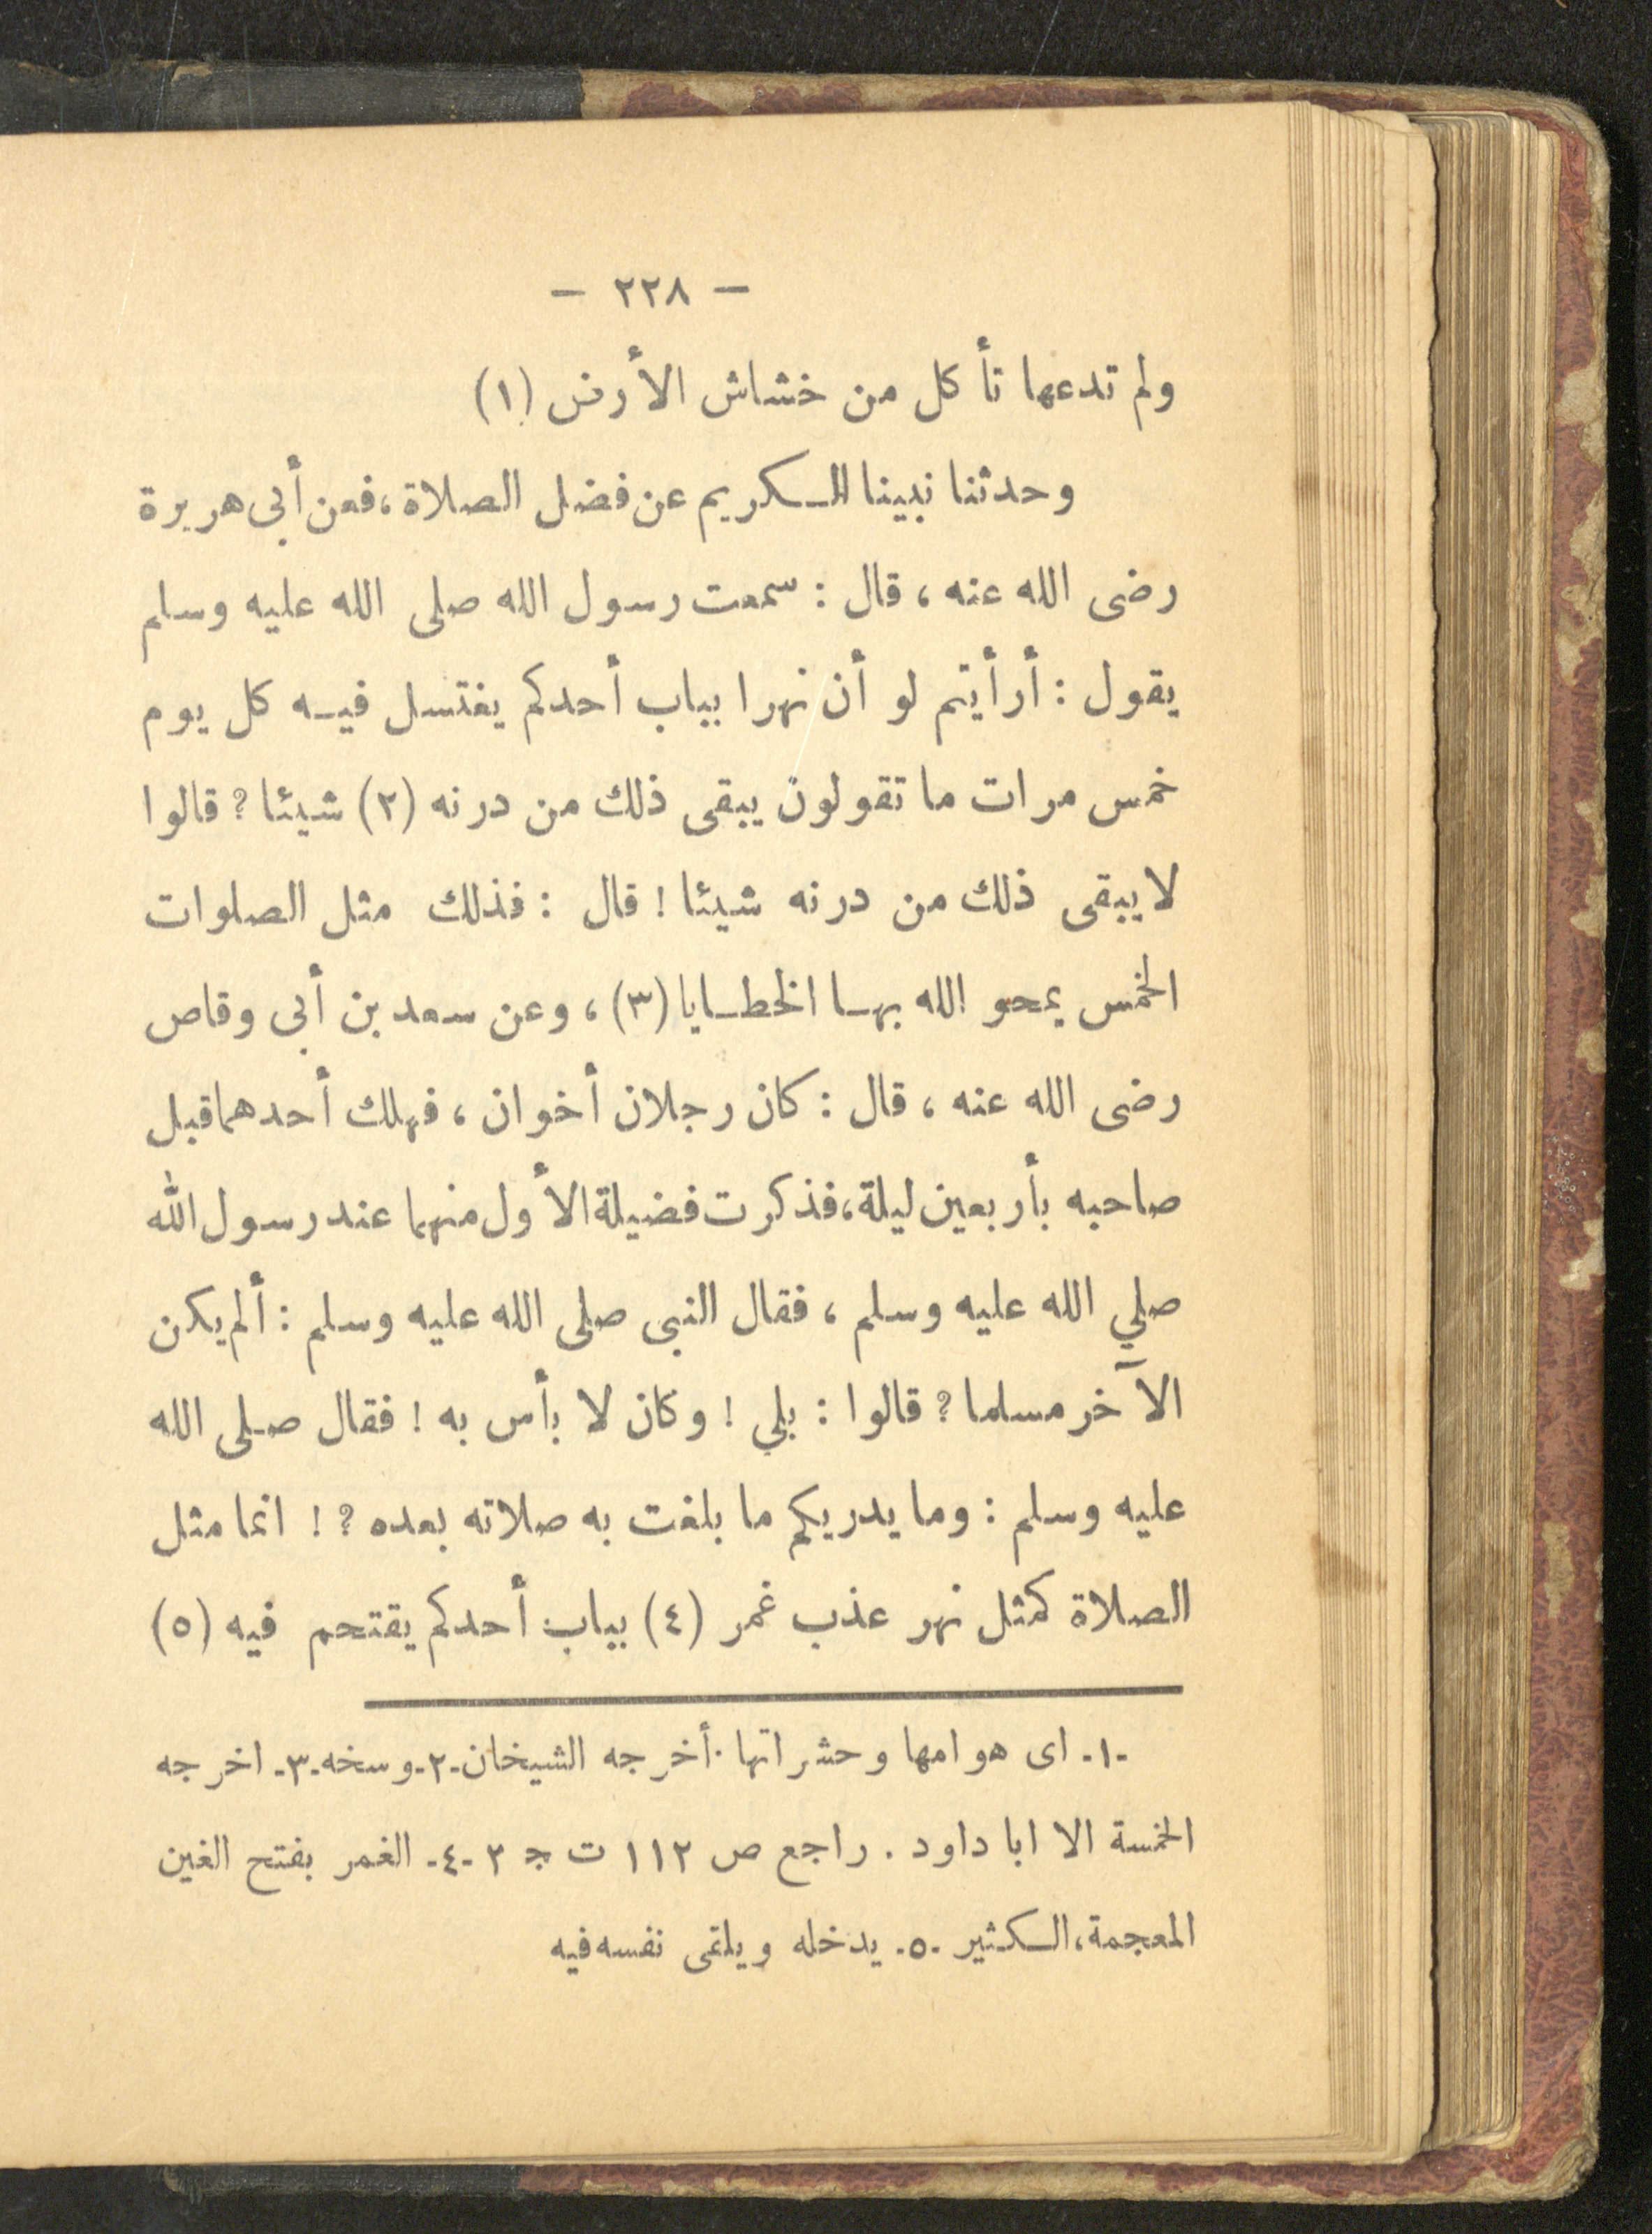 — ٢٢٨ —
ولم تدعها تأكل من خشاش الأرض (١)
وحدثنا نبينا الكريم عن فضل الصلاة، فعن أبى هريرة
رضى الله عنه، قال : سمعت رسول الله صلى الله عليه وسلم
يقول : أرأيتم لو أن نهرا بباب أحدكم يغتسل فيه كل يوم
خمس مرات ما تقولون يبقى ذلك من درنه (٢) شيئا ؟ قالوا
لا يبقى ذلك من درنه شيئا ! قال : فذلك مثل الصلوات
الخمس يمحو الله بها الخطايا (٣)، وعن سعد بن أبى وقاص
رضى الله عنه، قال : كان رجلان أخوان، فهلك أحدهما قبل
صاحبه بأربعين ليلة، فذكرت فضيلة الأول منهما عند رسول الله
صلي الله عليه وسلم، فقال النبى صلى الله عليه وسلم : ألم يكن
الآخر مسلما ؟ قالوا : بلي ! وكان لا بأس به ! فقال صلى الله
عليه وسلم : وما يدريكم ما بلغت به صلاته بعده ؟ ! انما مثل
الصلاة كمثل نهر عذب غمر (٤) بباب أحدكم يقتحم فيه (٥)
-١- اى هوامها وحشراتها . أخرجه الشيخان -٢- وسخه -٣- اخرجه
الخمسة الا ابا داود . راجع ص ١١٢ ت ج ٢ -٤- الغمر بفتح الغين
المعجمة، الكثير -٥- يدخله ويلقى نفسه فيه